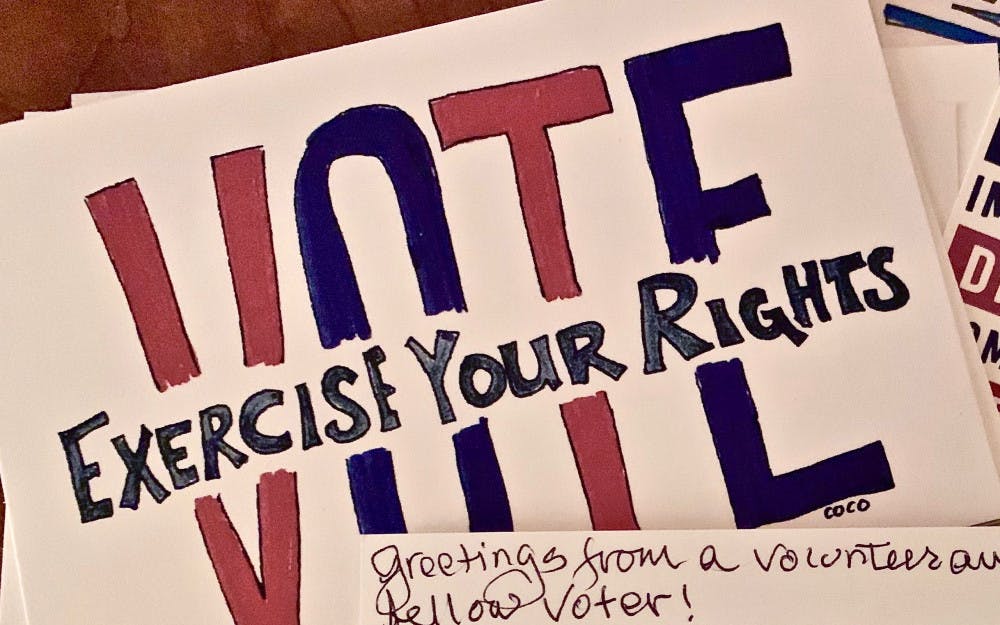 VOTE
EXERCISE YOUR RIGHTS
COCO
Greetings from a volunteer
fellow voter!
D